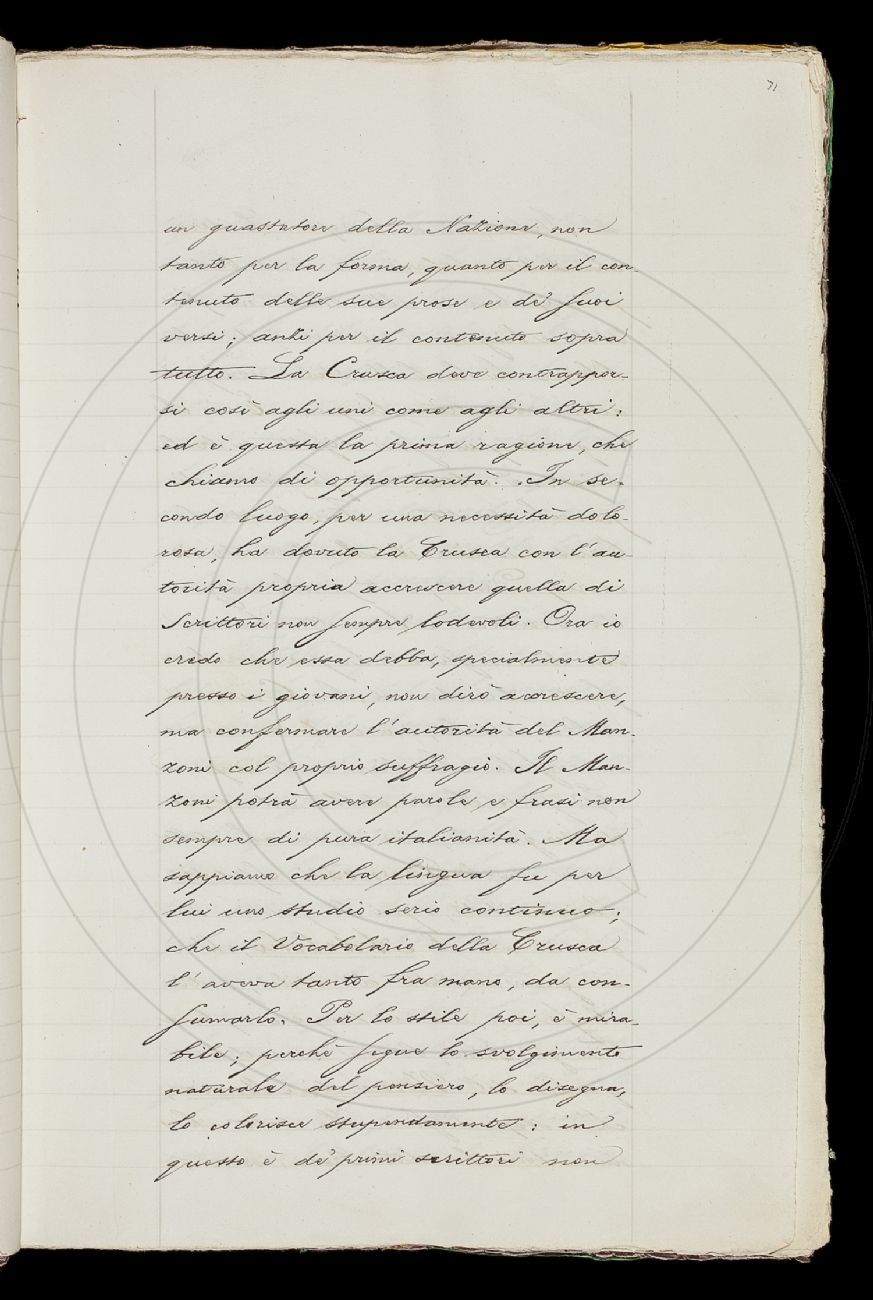 71
un guastatore della Nazione, non
tanto per la forma, quanto per il con-
tenuto delle sue prose e de' suoi
versi; anzi per il contenuto sopra
tutto. La Crusca deve contrappor-
si così agli uni come agli altri:
ed è questa la prima ragione, che
chiamo di opportunità. In se-
condo luogo, per una necessità dolo-
rosa, ha dovuto la Crusca con l'au-
torità propria accrescere quella di
Scrittori non sempre lodevoli. Ora io
credo che essa debba, specialmente
presso i giovani, non dirò accrescere,
ma confermare l'autorità del Man-
zoni col proprio suffragio. Il Man-
zoni potrà avere parole e frasi non
sempre di pura italianità. Ma
sappiamo che la lingua fu per
lui uno studio serio continuo;
che il Vocabolario della Crusca
l'aveva tanto fra mano, da con-
sumarlo. Per lo stile poi, è mira-
bile; perchè segue lo svolgimento
naturale del pensiero, lo disegna,
lo colorisce stupendamente: in
questo è de' primi scrittori non